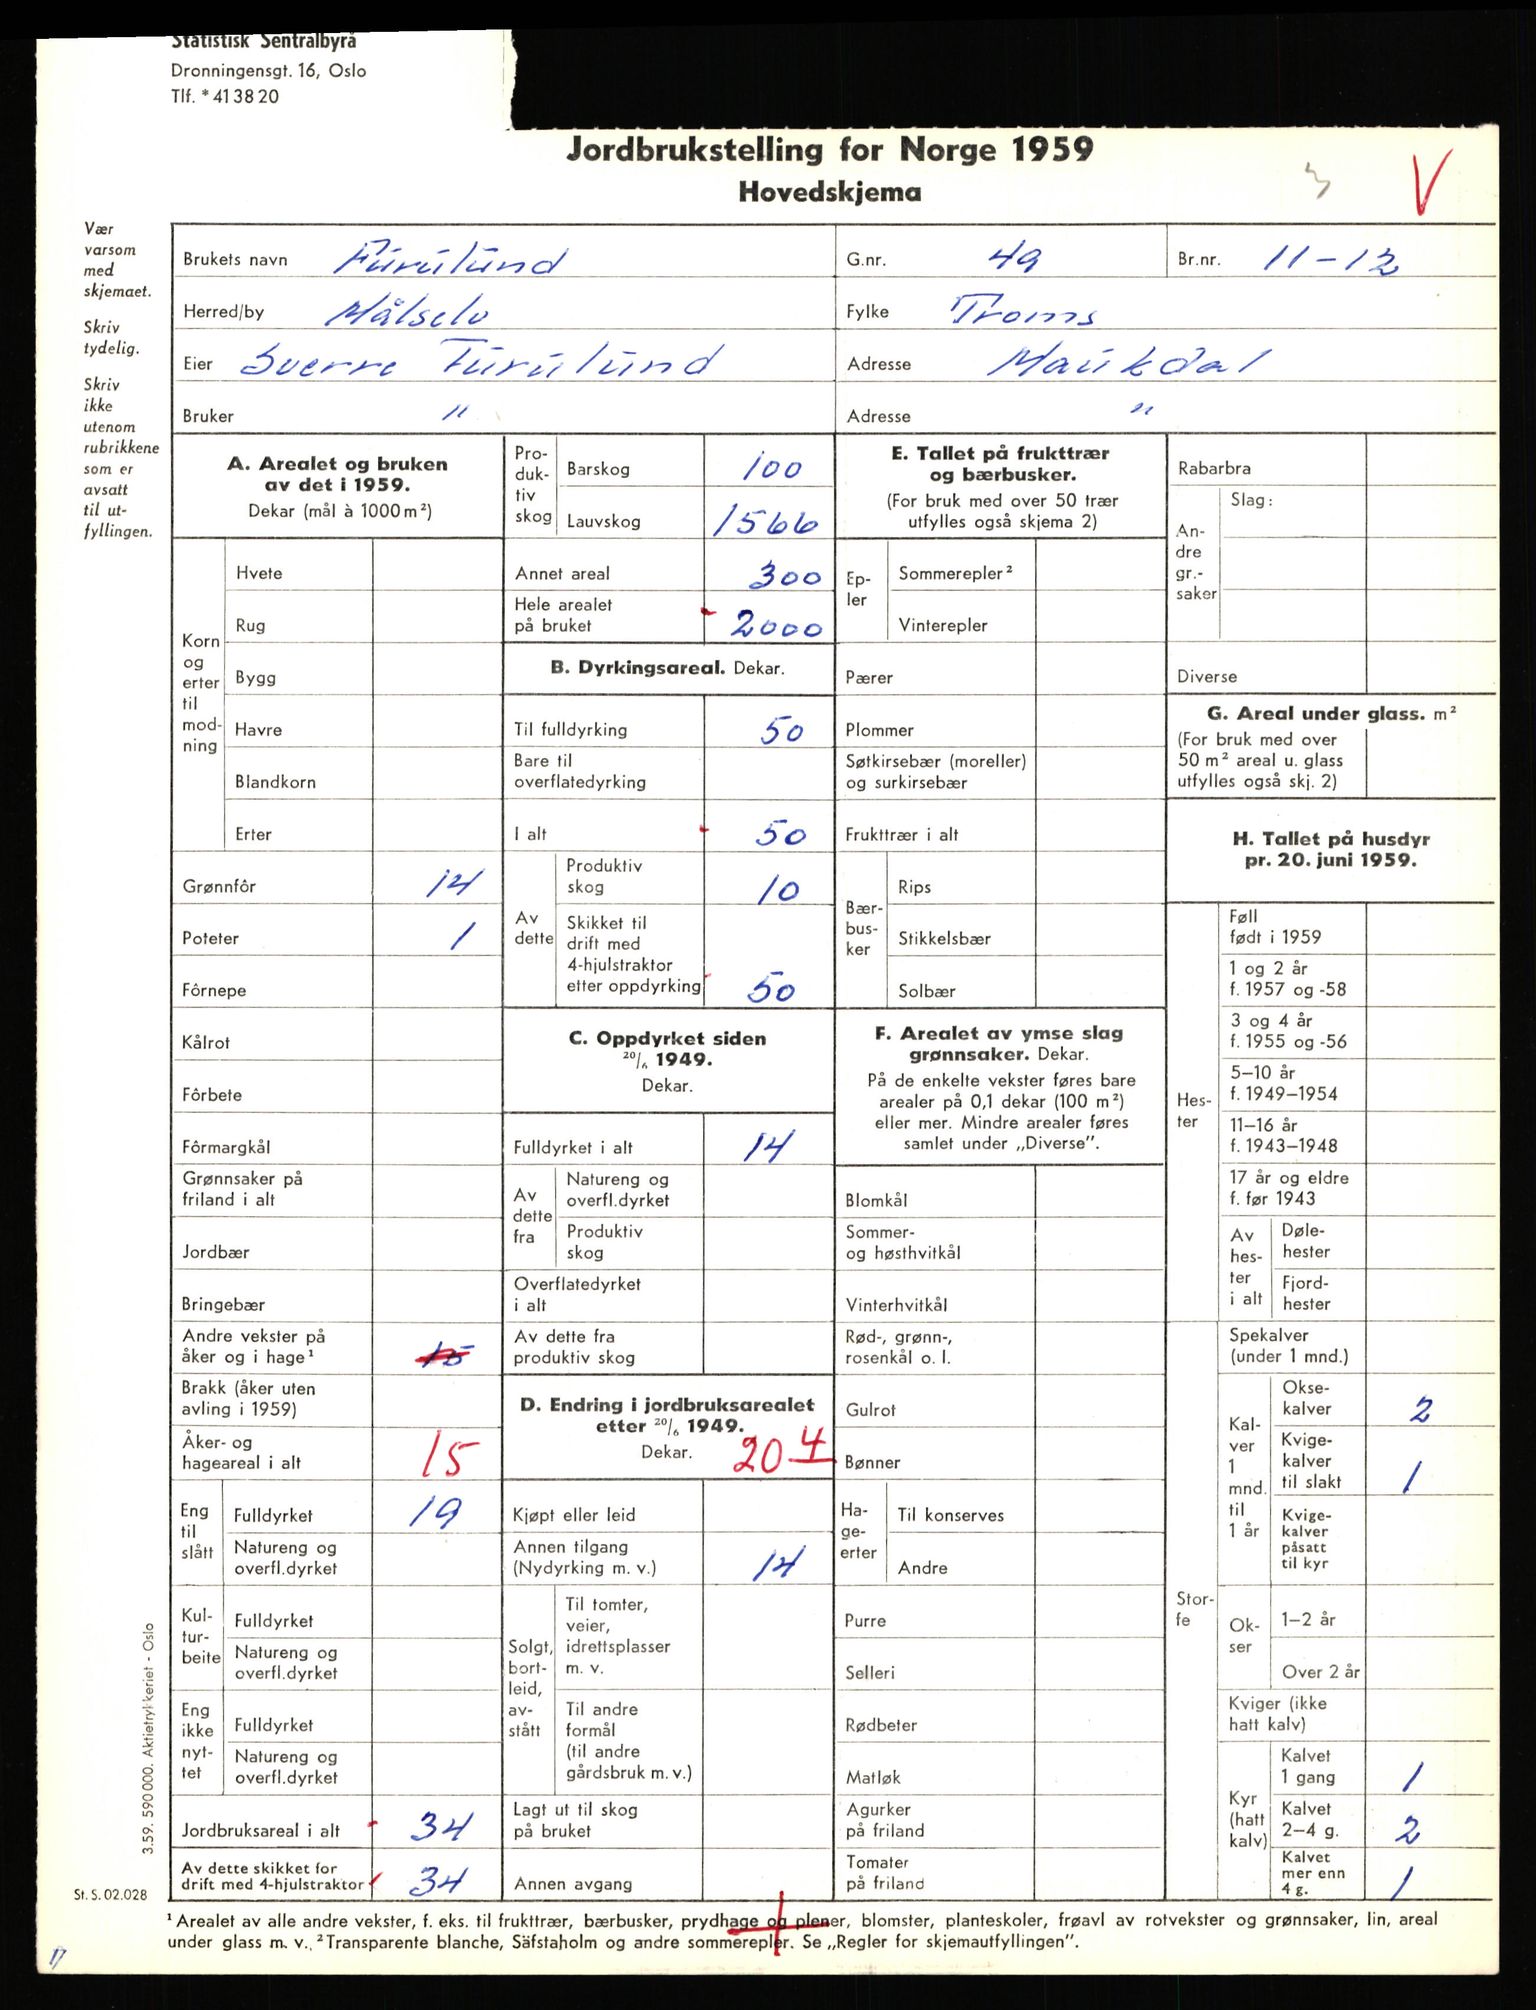 Statistisk Sentralbyrå
Dronningensgt. 16, Oslo
Tlf. * 41 38 20
Jordbrukstelling for Norge 1959
Hovedskjema
3
V
Vær
varsom
med
skjemaet.
Skriv
tydelig.
Skriv
ikke
utenom
rubrikkene
som er
avsatt
til ut-
fyllingen.
Brukets navn Furulund G.nr. 49 Br.nr. 11-12
Herred/by Målselv Fylke Troms
Eier Sverre Furulund Adresse Maukdal
Bruker " Adresse "
A. Arealet og bruken
av det i 1959.
Dekar (mål à 1000 m²)
Korn
og
erter
til
mod-
ning
Hvete
Rug
Bygg
Havre
Blandkorn
Erter
Grønnfôr 14
Poteter 1
Fôrnepe
Kålrot
Fôrbete
Fôrmargkål
Grønnsaker på
friland i alt
Jordbær
Bringebær
Andre vekster på
åker og i hage¹ 15
Brakk (åker uten
avling i 1959)
Åker- og
hageareal i alt 15
Eng
til
slått
Fulldyrket 19
Natureng og
overfl.dyrket
Kul-
tur-
beite
Fulldyrket
Natureng og
overfl.dyrket
Eng
ikke
nyt-
tet
Fulldyrket
Natureng og
overfl.dyrket
Jordbruksareal i alt 34
Av dette skikket for
drift med 4-hjulstraktor 34
Pro-
duk-
tiv
skog
Barskog 100
Lauvskog 1566
Annet areal 300
Hele arealet
på bruket 2000
B. Dyrkingsareal. Dekar.
Til fulldyrking 50
Bare til
overflatedyrking
I alt 50
Av
dette
Produktiv
skog 10
Skikket til
drift med
4-hjulstraktor
etter oppdyrking 50
C. Oppdyrket siden
20/6 1949.
Dekar.
Fulldyrket i alt 14
Av
dette
fra
Natureng og
overfl.dyrket
Produktiv
skog
Overflatedyrket
i alt
Av dette fra
produktiv skog
D. Endring i jordbruksarealet
etter 20/6 1949.
Dekar. 20 4
Kjøpt eller leid
Annen tilgang
(Nydyrking m. v.) 14
Solgt,
bort-
leid,
av-
stått
Til tomter,
veier,
idrettsplasser
m. v.
Til andre
formål
(til andre
gårdsbruk m. v.)
Lagt ut til skog
på bruket
Annen avgang
E. Tallet på frukttrær
og bærbusker.
(For bruk med over 50 trær
utfylles også skjema 2)
Ep-
ler
Sommerepler ²
Vinterepler
Pærer
Plommer
Søtkirsebær (moreller)
og surkirsebær
Frukttrær i alt
Bær-
bus-
ker
Rips
Stikkelsbær
Solbær
F. Arealet av ymse slag
grønnsaker. Dekar.
På de enkelte vekster føres bare
arealer på 0,1 dekar (100 m²)
eller mer. Mindre arealer føres
samlet under „Diverse”.
Blomkål
Sommer-
og høsthvitkål
Vinterhvitkål
Rød-, grønn-,
rosenkål o. l.
Gulrot
Bønner
Ha-
ge-
erter
Til konserves
Andre
Purre
Selleri
Rødbeter
Matløk
Agurker
på friland
Tomater
på friland
Rabarbra
An-
dre
gr.-
saker
Slag:
Diverse
G. Areal under glass. m²
(For bruk med over
50 m² areal u. glass
utfylles også skj. 2)
H. Tallet på husdyr
pr. 20. juni 1959.
Hes-
ter
Føll
født i 1959
1 og 2 år
f. 1957 og -58
3 og 4 år
f. 1955 og -56
5–10 år
f. 1949–1954
11–16 år
f. 1943–1948
17 år og eldre
f. før 1943
Av
hes-
ter
i alt
Døle-
hester
Fjord-
hester
Stor-
fe
Spekalver
(under 1 mnd.)
Kal-
ver
1
mnd.
til
1 år
Okse-
kalver 2
Kvige-
kalver
til slakt 1
Kvige-
kalver
påsatt
til kyr
Ok-
ser
1–2 år
Over 2 år
Kviger (ikke
hatt kalv)
Kyr
(hatt
kalv)
Kalvet
1 gang 1
Kalvet
2–4 g. 2
Kalvet
mer enn
4 g. 1
3.59. 590 000. Aktietrykkeriet - Oslo
St. S. 02.028
¹ Arealet av alle andre vekster, f. eks. til frukttrær, bærbusker, prydhage og plener, blomster, planteskoler, frøavl av rotvekster og grønnsaker, lin, areal
under glass m. v. ² Transparente blanche, Säfstaholm og andre sommerepler. Se „Regler for skjemautfyllingen”.